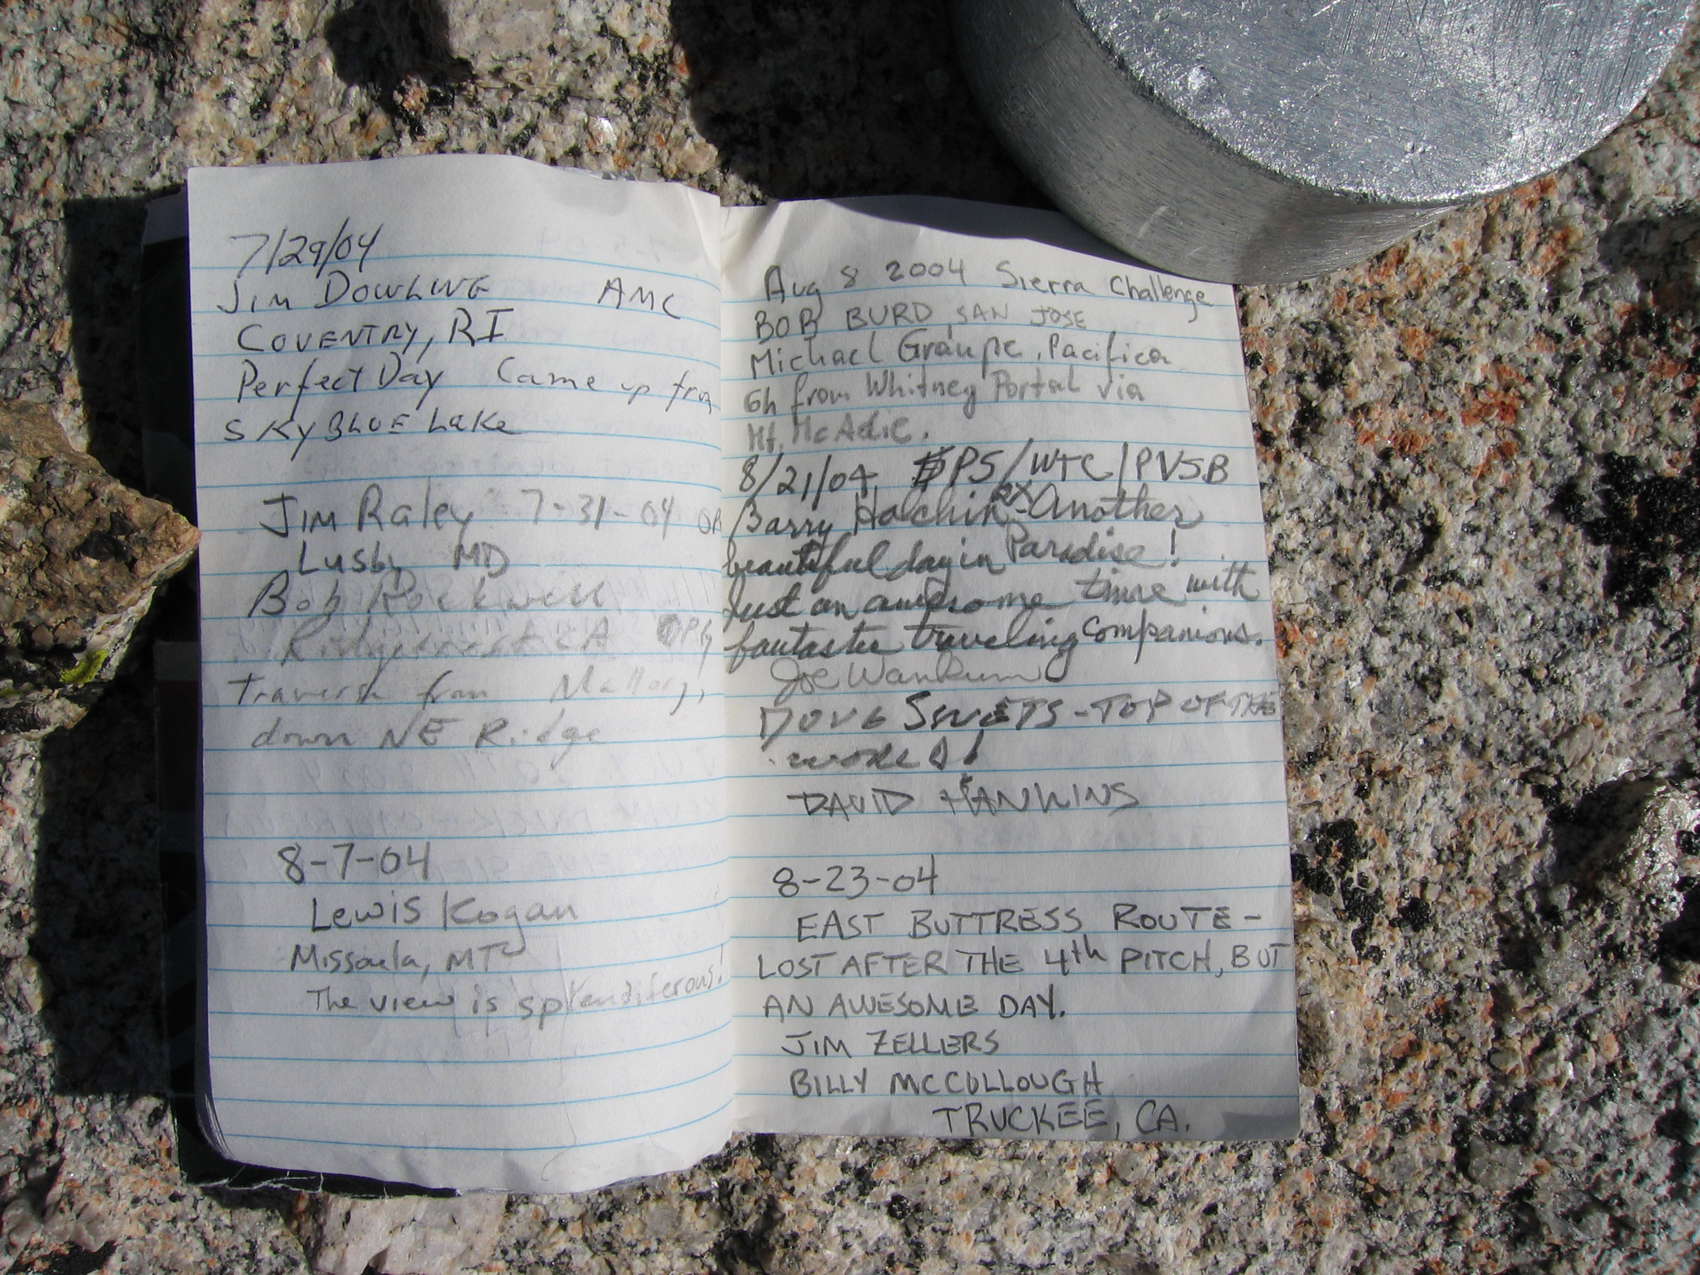 7/29/04
JIM DOWLING AMC
COVENTRY, RI
Perfect Day Came up from
SKY BLUE Lake
Jim Raley 7-31-04
Lusby MD
Bob Rockwell
Ridgecrest CA
traverse from Mallory,
down NE Ridge
8-7-04
Lewis Kogan
Missoula, MT
The view is splendiferous!
Aug 8 2004 Sierra Challenge
BOB BURD SAN JOSE
Michael Graupe, Pacifica
6h from Whitney Portal via
Mt. McAdie.
8/21/04 DPS/WTC/PVSB
Barry Holchin 2x Another
beautiful day in Paradise!
Just an awesome time with
fantastic traveling companions.
Joe Wankum
DOUG SWETS - TOP OF THE
WORLD!
DAVID HANKINS
8-23-04
EAST BUTTRESS ROUTE -
LOST AFTER THE 4th PITCH, BUT
AN AWESOME DAY.
JIM ZELLERS
BILLY MCCULLOUGH
TRUCKEE, CA.